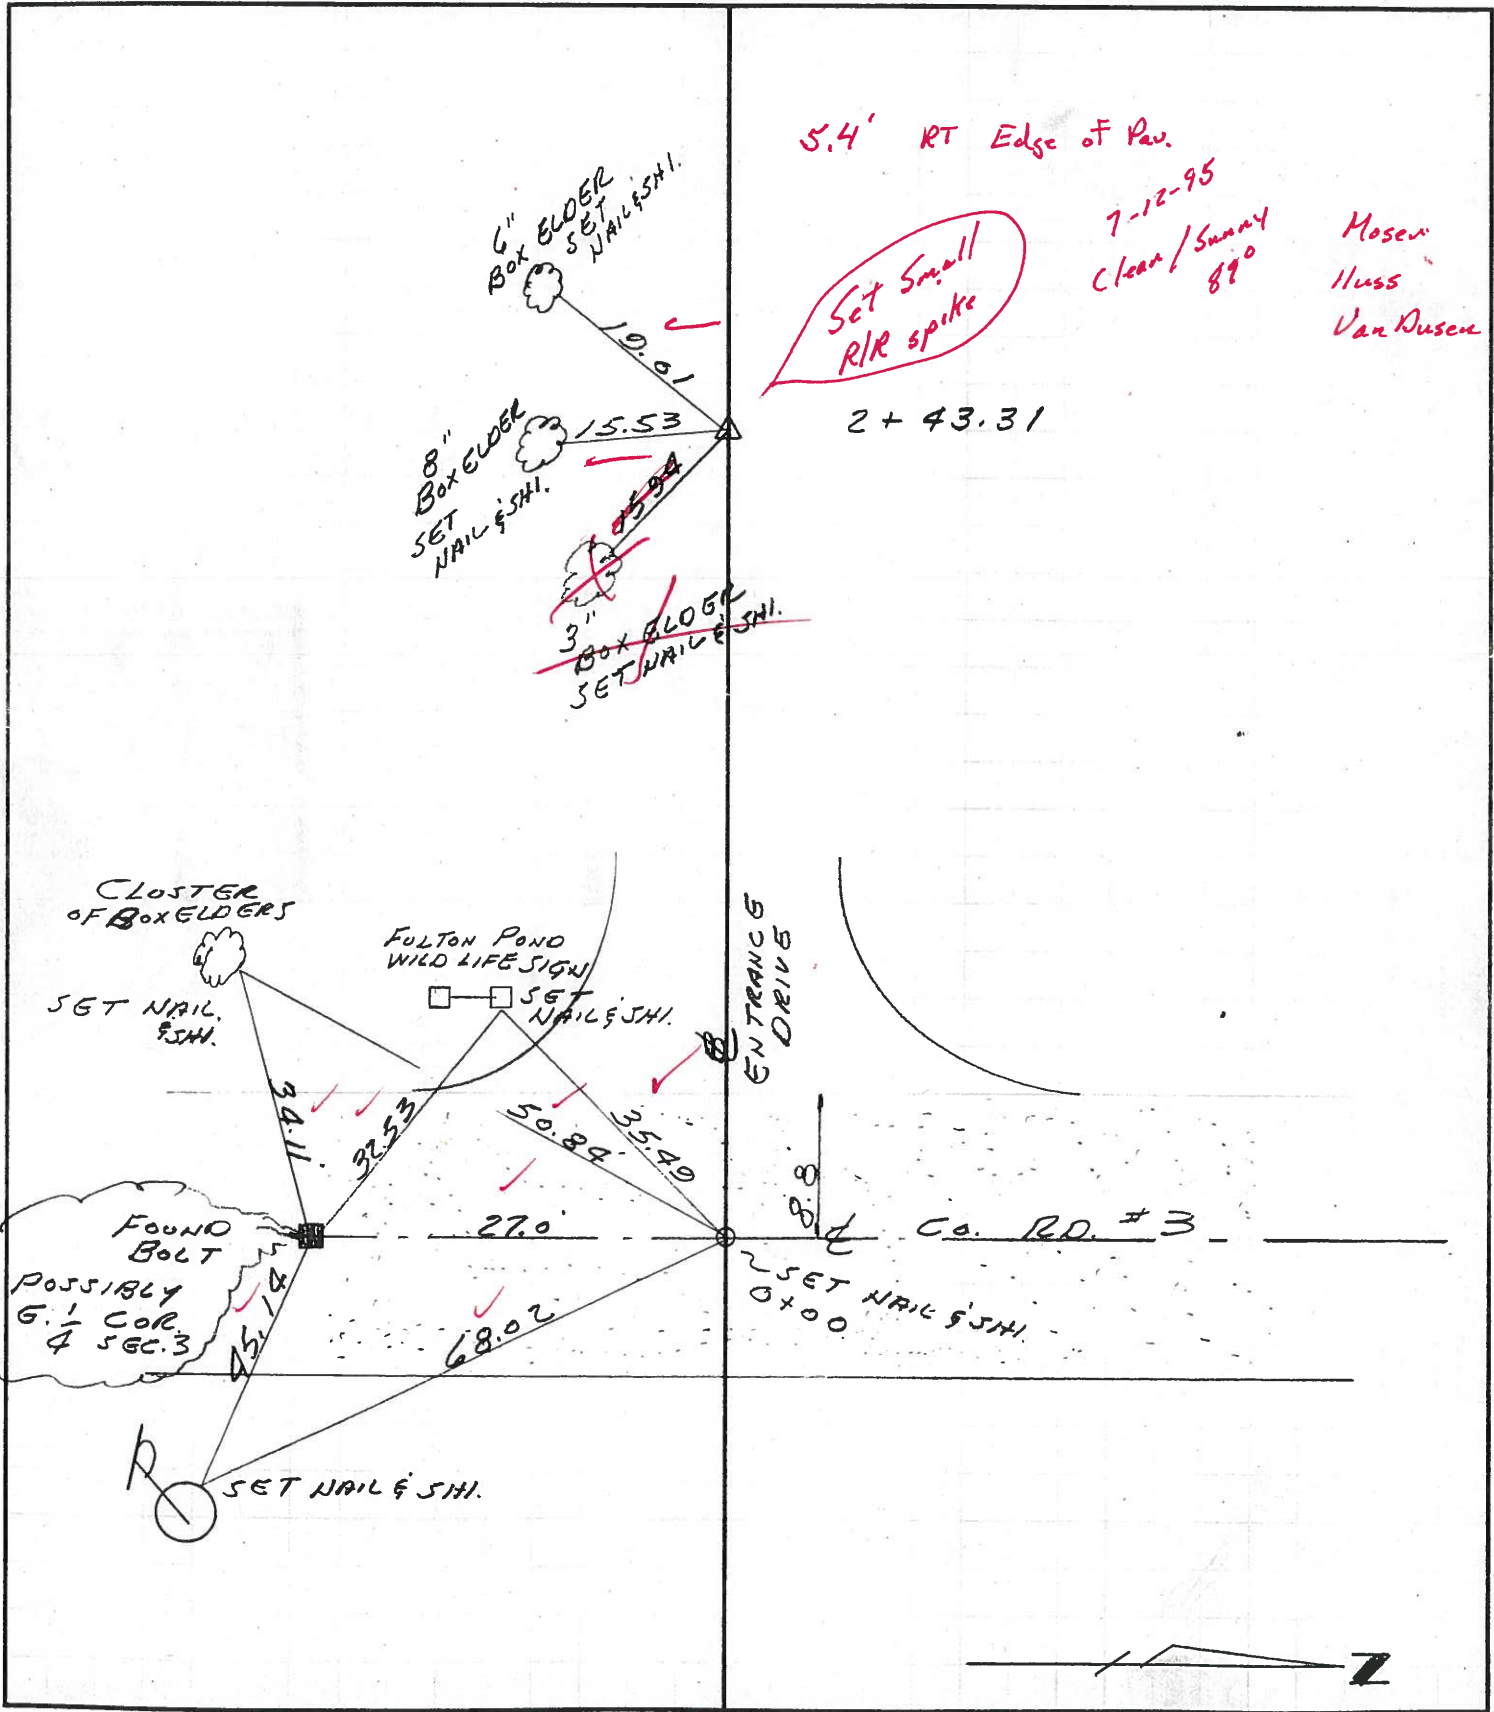 5.4' RT Edge of Pav.
7-12-95
Clear / Sunny
89°
Moser
Huss
Van Dusen
Set Small
R/R spike
6"
BOX ELDER
SET
NAIL & SHI.
19.01
2 + 43.31
8"
BOX ELDER
SET
NAIL & SHI.
15.53
15.94
3"
BOX ELDER
SET NAIL & SHI.
CLOSTER
OF BOX ELDERS
SET NAIL
& SHI.
FULTON POND
WILD LIFE SIGN
SET
NAIL & SHI.
ENTRANCE
DRIVE
34.11'
32.53
50.84'
35.49
8.8
FOUND
BOLT
27.0'
℄ Co. RD. #3
POSSIBLY
E. 1/4 COR.
SEC. 3
SET NAIL & SHI.
0+00
45.14
68.02
SET NAIL & SHI.
Z